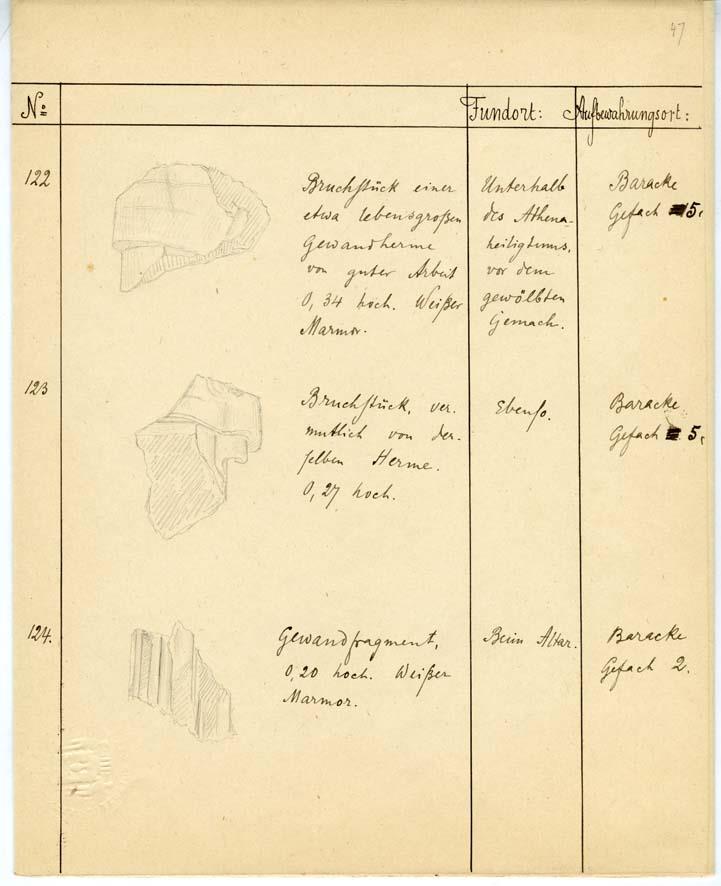 47
No Fundort: Aufbewahrungsort:
122
Bruchstück einer
etwa lebensgroßen
Gewandherme
von guter Arbeit
0,34 hoch. Weißer
Marmor.
Unterhalb
des Athena-
heiligtums,
vor dem
gewölbten
Gemach.
Baracke
Gefach 5.
123
Bruchstück, ver-
mutlich von der-
selben Herme.
0,27 hoch.
Ebenso.
Baracke
Gefach 5.
124.
Gewandfragment,
0,20 hoch. Weißer
Marmor.
Beim Altar.
Baracke
Gefach 2.